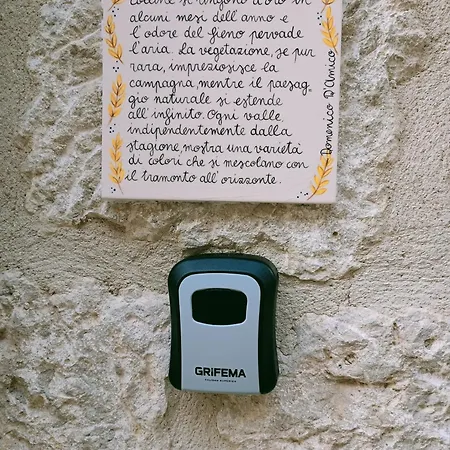 colline si tingono d'oro in
alcuni mesi dell'anno e
l'odore del fieno pervade
l'aria. La vegetazione, se pur
rara, impreziosisce la
campagna, mentre il paesag-
gio naturale si estende
all'infinito. Ogni valle,
indipendentemente dalla
stagione, mostra una varietà
di colori che si mescolano con
il tramonto all'orizzonte.
Domenico D'Amico
GRiFEMA